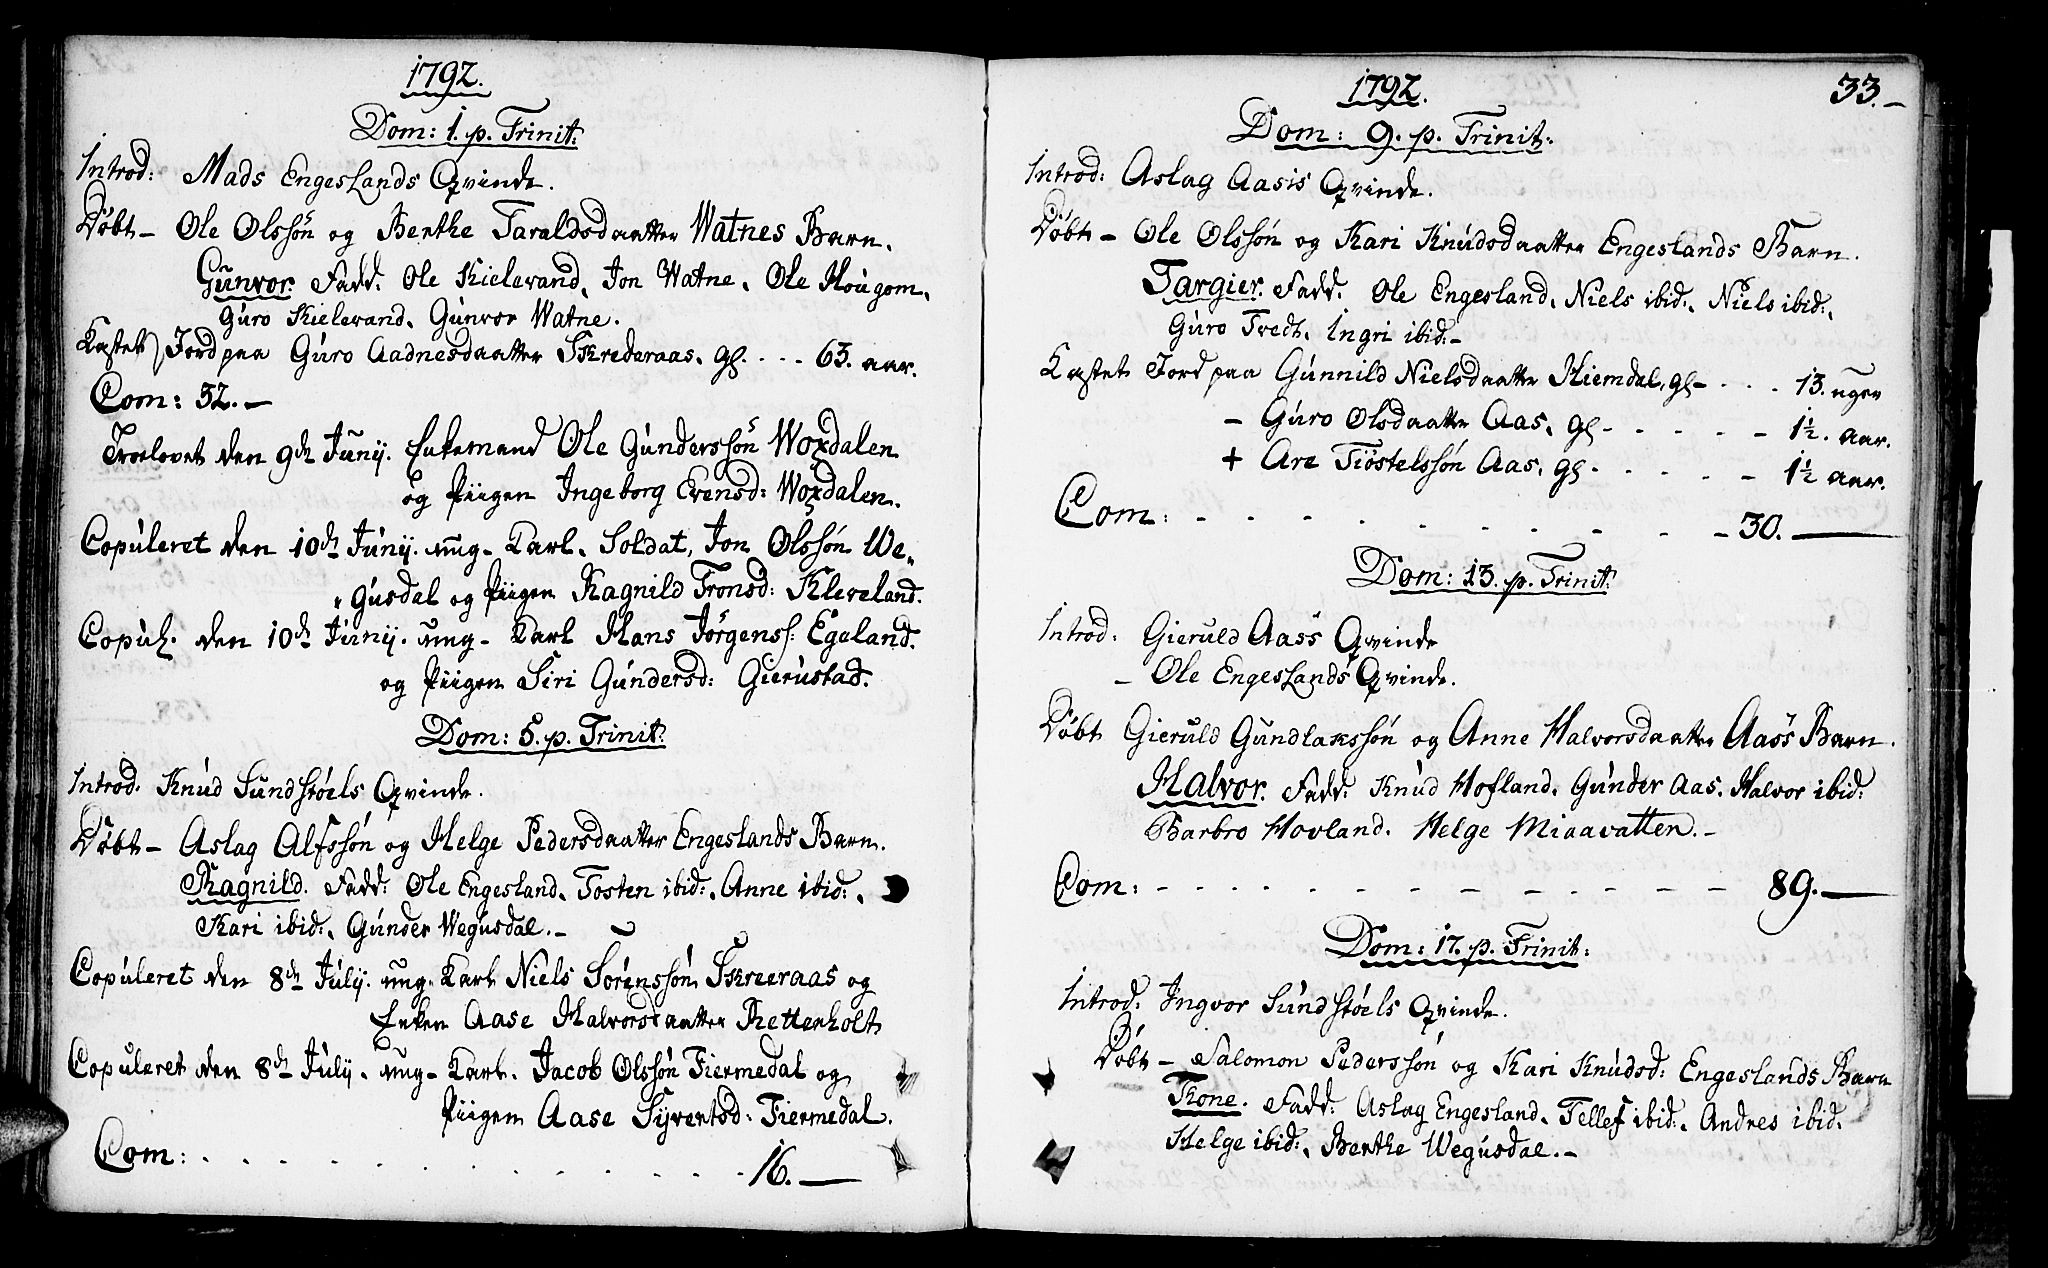 1792.
Dom: 1. p. Trinit:
Introd: Mads Engeslands Qvinde.
Döbt – Ole Olssön og Berthe Taraldsdaatter Watnes Barn.
Gunvor. Fadd. Ole Kielevand, Jon Watne, Ole Hougom,
Guro Kielevand, Gunvor Watne.
Kastet Jord paa Guro Aadnesdaatter Skrederaas, gl. . . . 63. aar.
Com: 32. –
Troelovet den 9de Junij. Enkemand Ole Gunderssön Woxdalen
og Piigen Ingeborg Evensd: Woxdalen.
Copuleret den 10de Junij. ung– Karl. Soldat, Jon Olssön We„
„gusdal og Piigen Ragnild Tronsd: Kleveland.
Copul. den 10de Junij. ung– Karl Hans Jörgens: Egeland.
og Piigen Siri Gundersd: Gierustad.
Dom: 5. p. Trinit:
Introd: Knud Sundstöels Qvinde.
Döbt – Aslag Alfssön og Helge Pedersdaatter Engeslands Barn.
Ragnild. Fadd: Ole Engesland, Tosten ibid:, Anne ibid:,
Kari ibid:, Gunder Wegusdal. –
Copuleret den 8de Julij. ung– Karl Niels Sörenssön Skreeraas og
Enken Aase Halvorsdaatter Rettenholt
Copuleret den 8de Julij. ung– Karl. Jacob Olssön Fiermedal og
Piigen Aase Syvertsd: Fiermedal.
Com: . . . . . . . . . . . 16. –
1792. 33. –
Dom: 9. p. Trinit:
Introd: Aslag Aasis Qvinde.
Döbt – Ole Olssön og Kari Knudsdaatter Engeslands Barn.
Targier. Fadd. Ole Engesland, Niels ibid:, Niels ibid:,
Guro Tvedt, Ingri ibid: –
Kastet Jord paa Gunnild Nielsdaatter Kiemdal, gl – . . . 13. uger
– Guro Olsdaatter Aas, gl – – – – – 1½. aar.
+ Are Tiöstelssön Aas, gl – . . . – 1½ aar.
Com: . . . . . . . . . – 30. –
Dom: 13. p. Trinit:
Introd: Gieruld Aass Qvinde
– Ole Engeslands Qvinde.
Döbt Gieruld Gundlakssön og Anne Halvorsdaatter Aass Barn.
Halvor. Fadd: Knud Hofland, Gunder Aas. Halvor ibid:
Barbro Hovland. Helge Miaavatten. –
Com: – – – – – – – – – – – 89. –
Dom: 17. p. Trinit:
Introd: Ingvor Sundstöels Qvinde.
Döbt – Salomon Pederssön og Kari Knudsd: Engeslands Barn
Tone. Fadd: Aslag Engesland, Tellef ibid:, Andres ibid.
Helge ibid:, Berthe Wegusdal. –